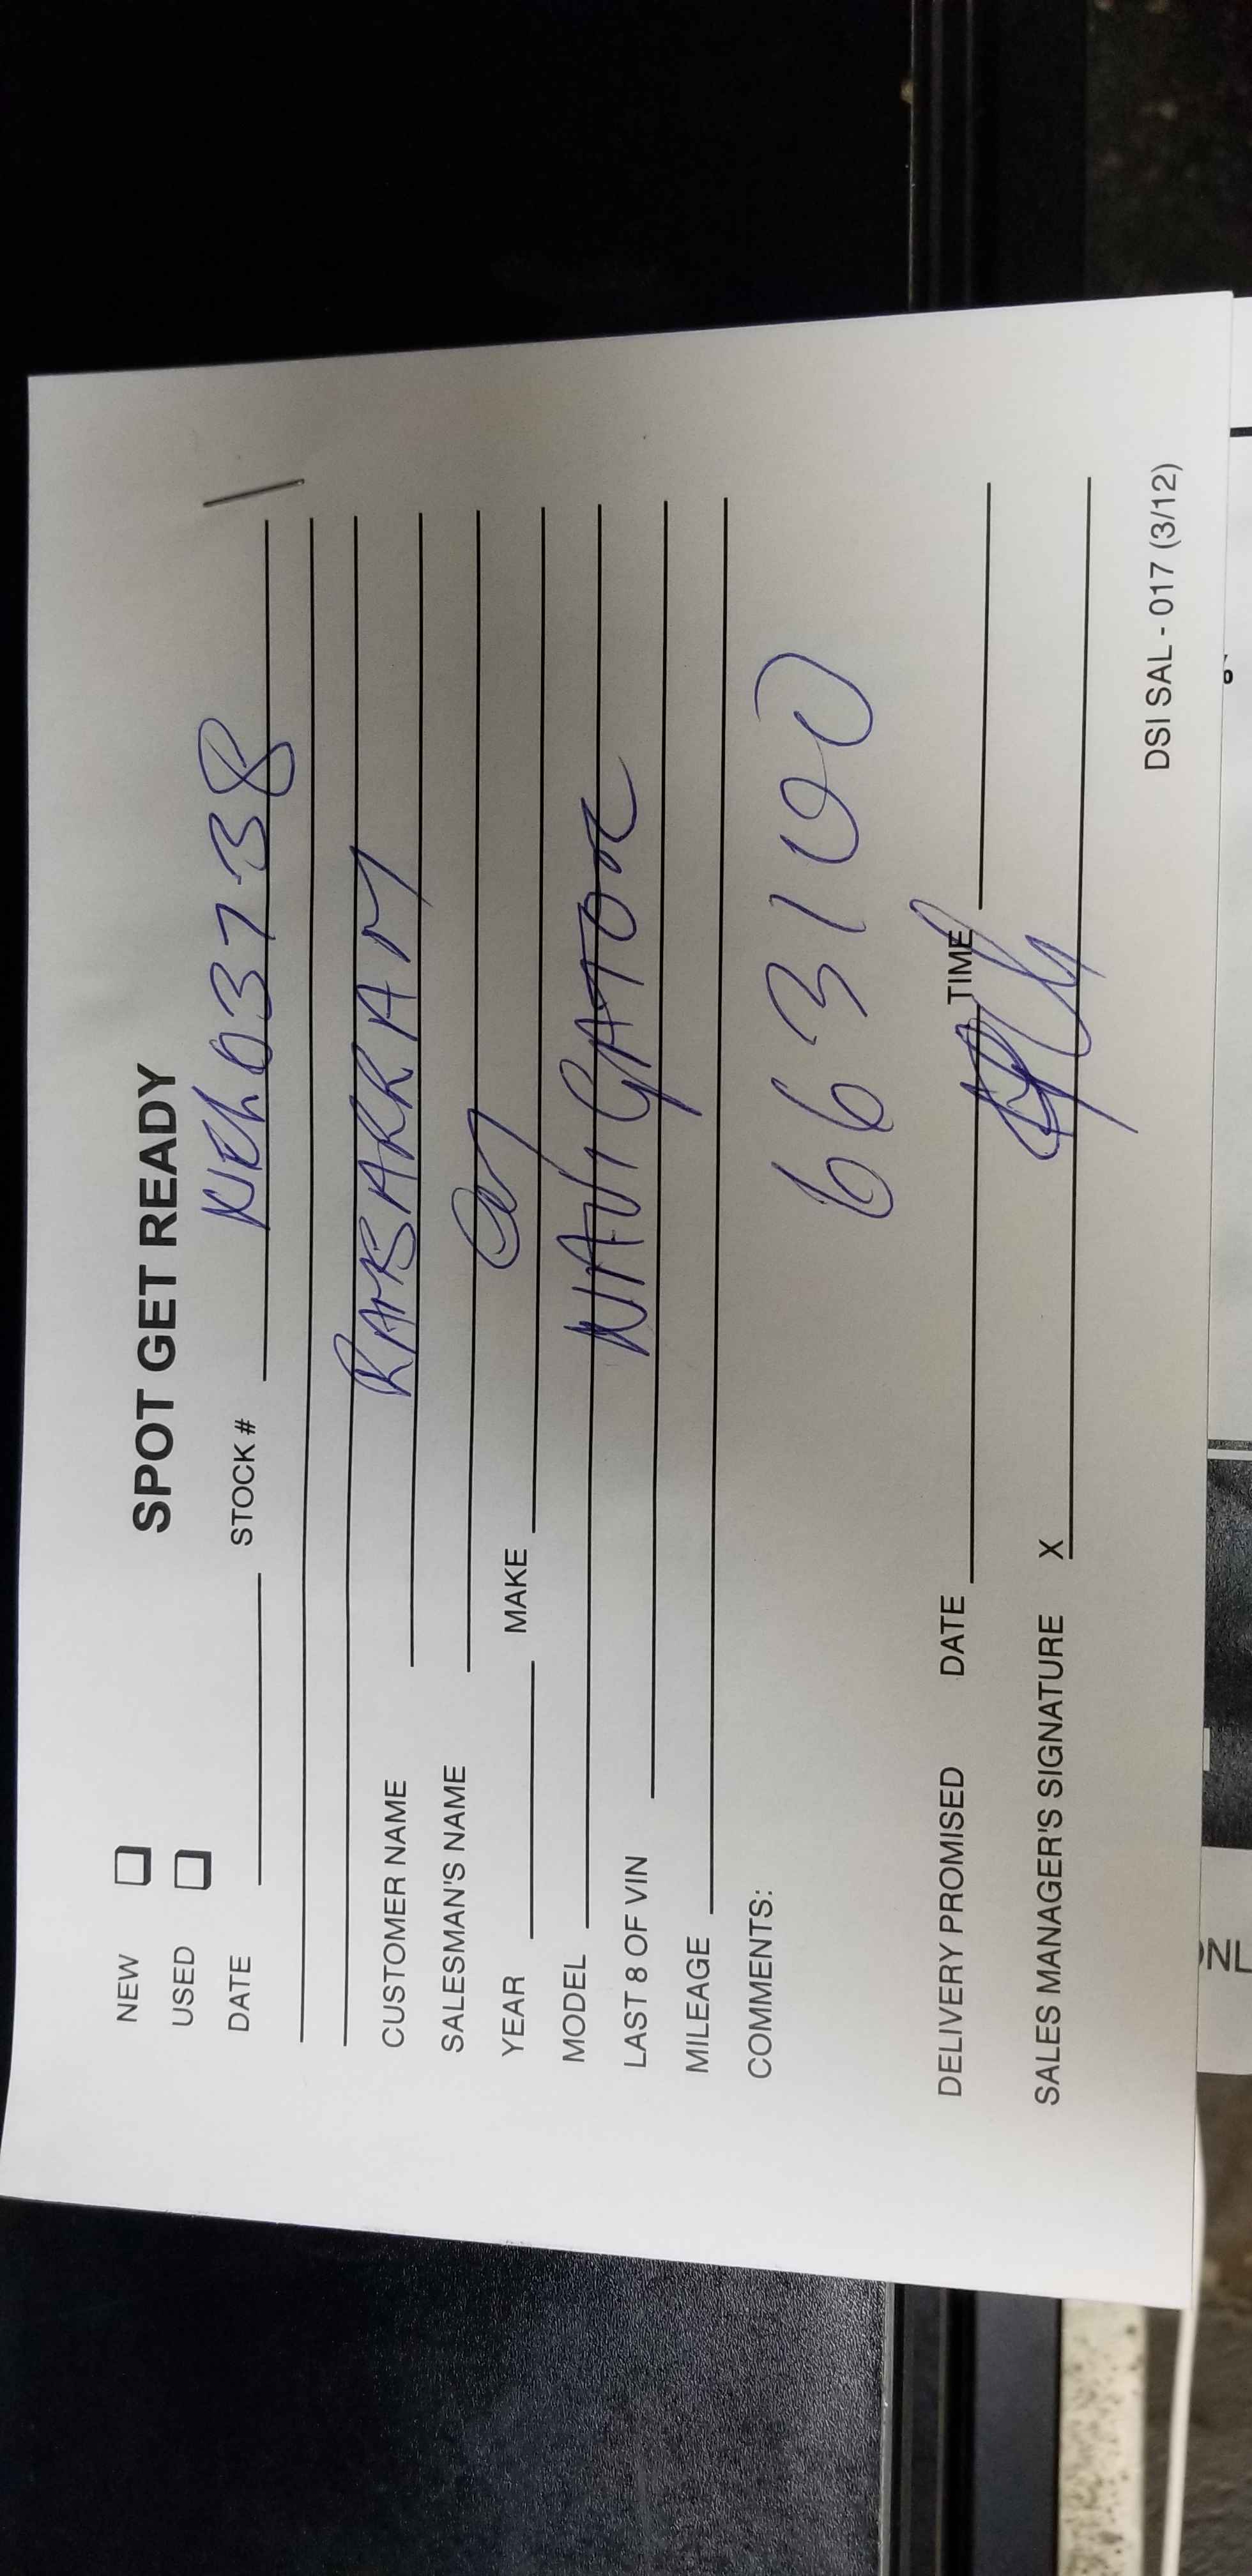 SPOT GET READY
NEW
USED
DATE STOCK # NEL03738
CUSTOMER NAME RAMBARRAM
SALESMAN'S NAME
YEAR MAKE
MODEL NAVIGATOR
LAST 8 OF VIN
MILEAGE
COMMENTS: 663100
DELIVERY PROMISED DATE TIME
SALES MANAGER'S SIGNATURE X
DSI SAL - 017 (3/12)